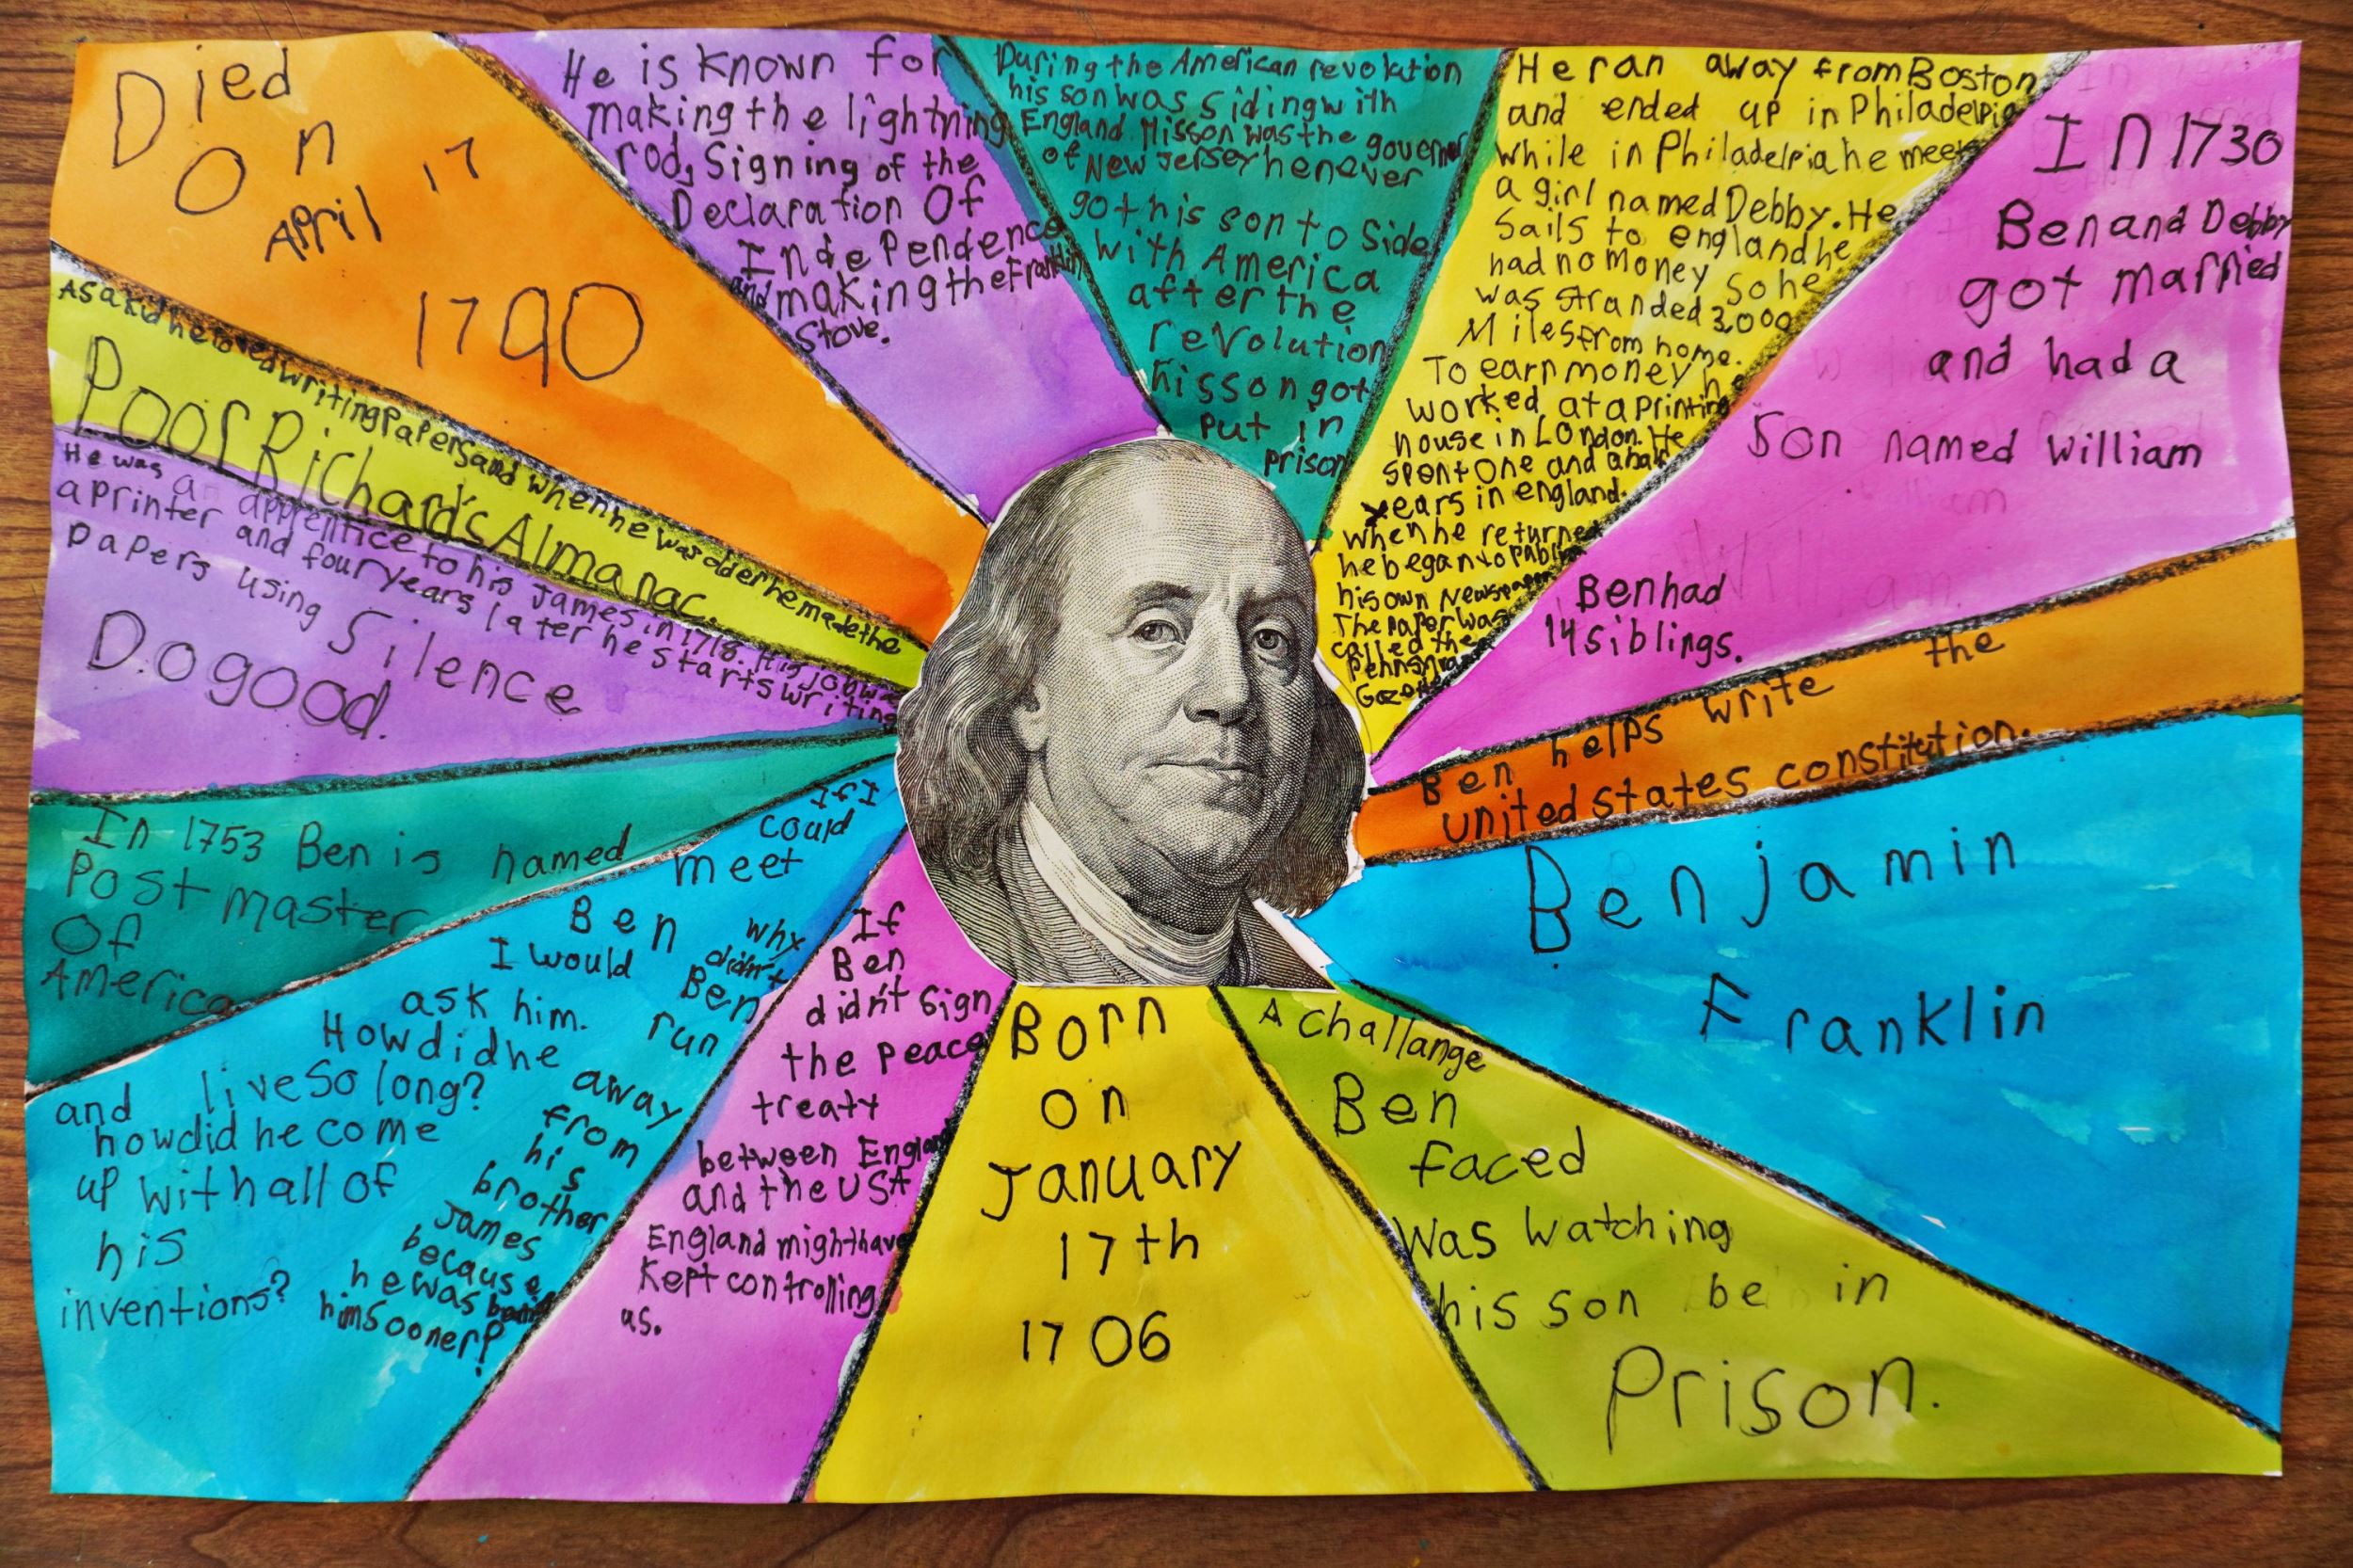 Died
On
April 17
1790
He is known for
making the lightning
rod, Signing of the
Declaration Of
Independence
and making the Franklin
Stove.
During the American revolution
his son was siding with
England. His son was the governer
of New Jersey he never
got his son to side
with America
after the
revolution
his son got
put in
prison
He ran away from Boston
and ended up in Philadelpia
while in Philadelpia he meets
a girl named Debby. He
Sails to england he
had no money so he
was stranded 3,000
Miles from home.
To earn money he
worked at a printing
house in London. He
spent One and a half
years in england.
When he returned
he began to publish
his own Newspaper
The Paper was
called the
Gazette
In 1730
Ben and Debby
got married
and had a
Son named William
Ben had
14 siblings.
Ben helps write the
united states constitution.
Benjamin
Franklin
A challange
Ben
faced
Was watching
his son be in
Prison.
Born
on
January
17th
1706
If
Ben
didn't sign
the Peace
treaty
between England
and the USA
England might have
kept controlling
us.
If I
could
meet
Ben
I would
ask him.
How did he
live so long?
and
how did he come
up with all of
his
inventions?
why
didn't
Ben
run
away
from
his
brother
James
because
he was
him sooner?
In 1753 Ben is named
Post master
Of
America
He was a apprentice to his James in 1718. His job was
a printer and four years later he starts writing
papers using Silence
Dogood.
As a kid he loved writing Papers and when he was older he made the
Poor Richard's Almanac.